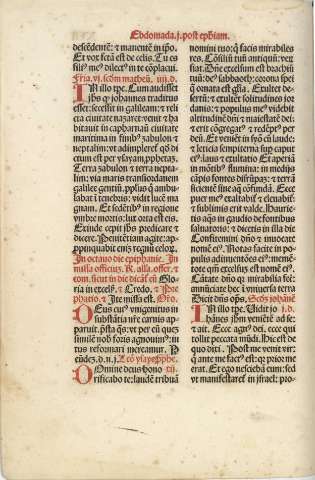 Ebdomada .j. post epbiam.
descēdentē: ⁊ manentē in ipo.
Et vox fctā est de celis. Tu es
filiꝰ meꝰ dilectꝰ in te cōplacui.
Fria .vi. scdm matheū. iiij. d.
IN illo tpe. Cum audisset
jhs qꝫ johannes traditus
esset: secessit in galileam: ⁊ reli
cta ciuitate nazaret venit ⁊ ha
bitauit in capharnaū ciuitate
maritima in finibꝰ zabulon ⁊
neptalim: vt adīpleret qd di
ctum est per ysayam pphetaz.
Terra zabulon ⁊ terra nepta-
lim: via maris trans iordanem
galilee gentiū. pplus q̄ ambu-
labat ī tenebris: vidit lucē ma
gnam. Et sedētibꝰ in regione
vmbre mortis: lux orta est eis.
Exinde cepit jhs predicare ⁊
dicere. Penitētiam agite: ap-
ppinquabit eni regnū celoꝝ.
In octauo die epiphanie. In
missa officiuz. R. alla. offer. ⁊
com. sicut in die dicāt̄ cū Glo
ria in excels. ⁊ Credo. ⁊ Pre
phatio. ⁊ Ite missa est. Oro.
DEus cuiꝰ vnigenitus in
substātia nr̄e carnis ap-
paruit. psta qs: vt per eū quez
similē nob foris agnouimꝰ: in
tus reformari mereamur. P
eūdez. d. n. j. Lco ysaye pphe.
DOmine deus hono xij
rificabo te: laudē tribuā
nomini tuo: q̄ facis mirabiles
res. Cōsiliū tuū antiquū: verū
fiat. Dn̄e excelsum est brachiū
tuū: deꝰ sabbaoth: corona spei
que ornata est gloria. Exultet
desertū: ⁊ exultēt solitudines jor
danis: ⁊ populus meꝰ videbit
altitudinē dn̄i ⁊ maiestatē dei:
⁊ erit cōgregatꝰ ⁊ redēptꝰ per
deū. Et veniet in syō cū laude:
⁊ leticia sempiterna sup caput
eiꝰ. laus ⁊ exultatio. Et aperiā
in mōtibꝰ flumina: in medijs
cāpis fontes dirūpaz: ⁊ terrā
sicientē sine aq̄ cōfundā. Ecce
puer meꝰ exaltabit̄ ⁊ eleuabit̄:
⁊ sublimis erit valde. Haurie-
tis aq̄s in gaudio de fontibus
saluatoris: ⁊ dicetis in illa die
Confitemini dn̄o ⁊ inuocate
nomē eiꝰ. Notas facite in po-
pulis adinuentōes eiꝰ: memē-
tote qm̄ excelsuz est nomē eiꝰ.
Cātate dn̄o qr mirabilia fec:
annūciate hec ī vniuersa terra
Dicit dn̄s ops. Scdm johānē
IN illo tpe. Vidit jo j. d.
hānes jhm venīetē ad se:
⁊ ait. Ecce agnꝰ dei. ecce qui
tollit peccata mūdi. Hic est de
quo dixi. Post me venit vir:
q̄ ante me factꝰ est: qr prior me
erat. Et ego nesciebā eum: sed
vt manifestaret̄ in jsrael: pro-